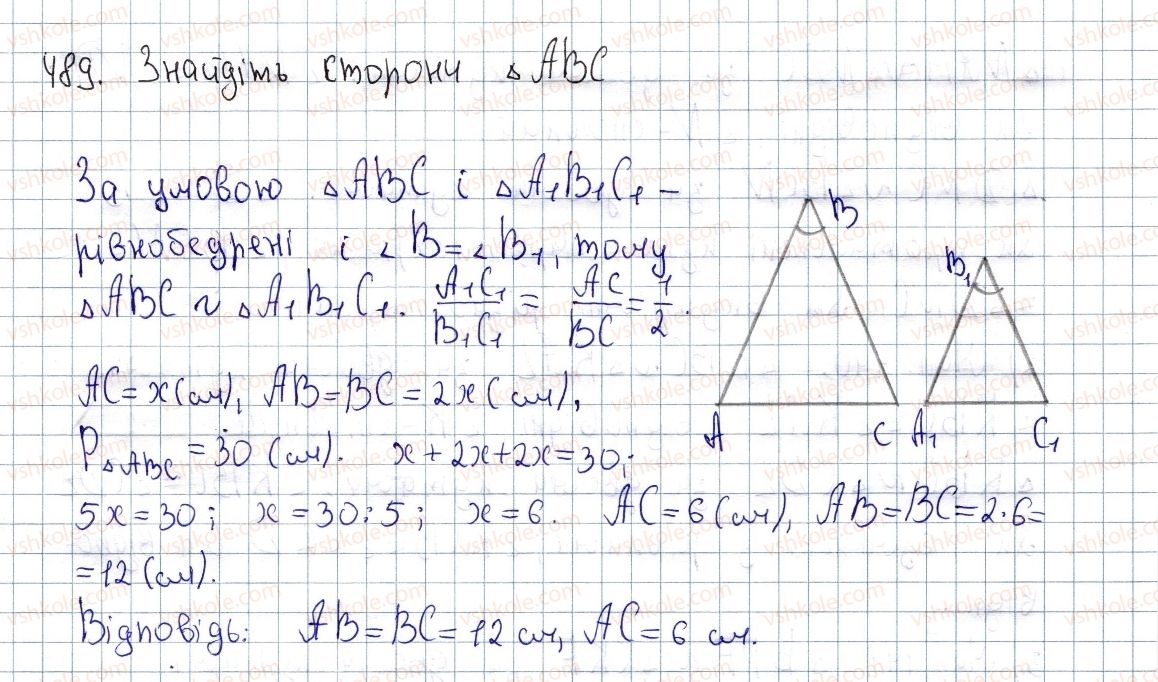 489. Знайдіть сторони △ ABC
За умовою △ABC і △A₁B₁C₁ –
рівнобедрені і ∠B=∠B₁, тому
△ABC ∾ △A₁B₁C₁. A₁C₁/B₁C₁ = AC/BC = 1/2.
AC = x (см), AB = BC = 2x (см),
P△ABC = 30 (см). x + 2x + 2x = 30;
5x = 30; x = 30:5; x = 6. AC = 6 (см), AB = BC = 2·6 =
= 12 (см).
Відповідь: AB = BC = 12 см, AC = 6 см.
B
B₁
A
C
A₁
C₁
vshkole.com